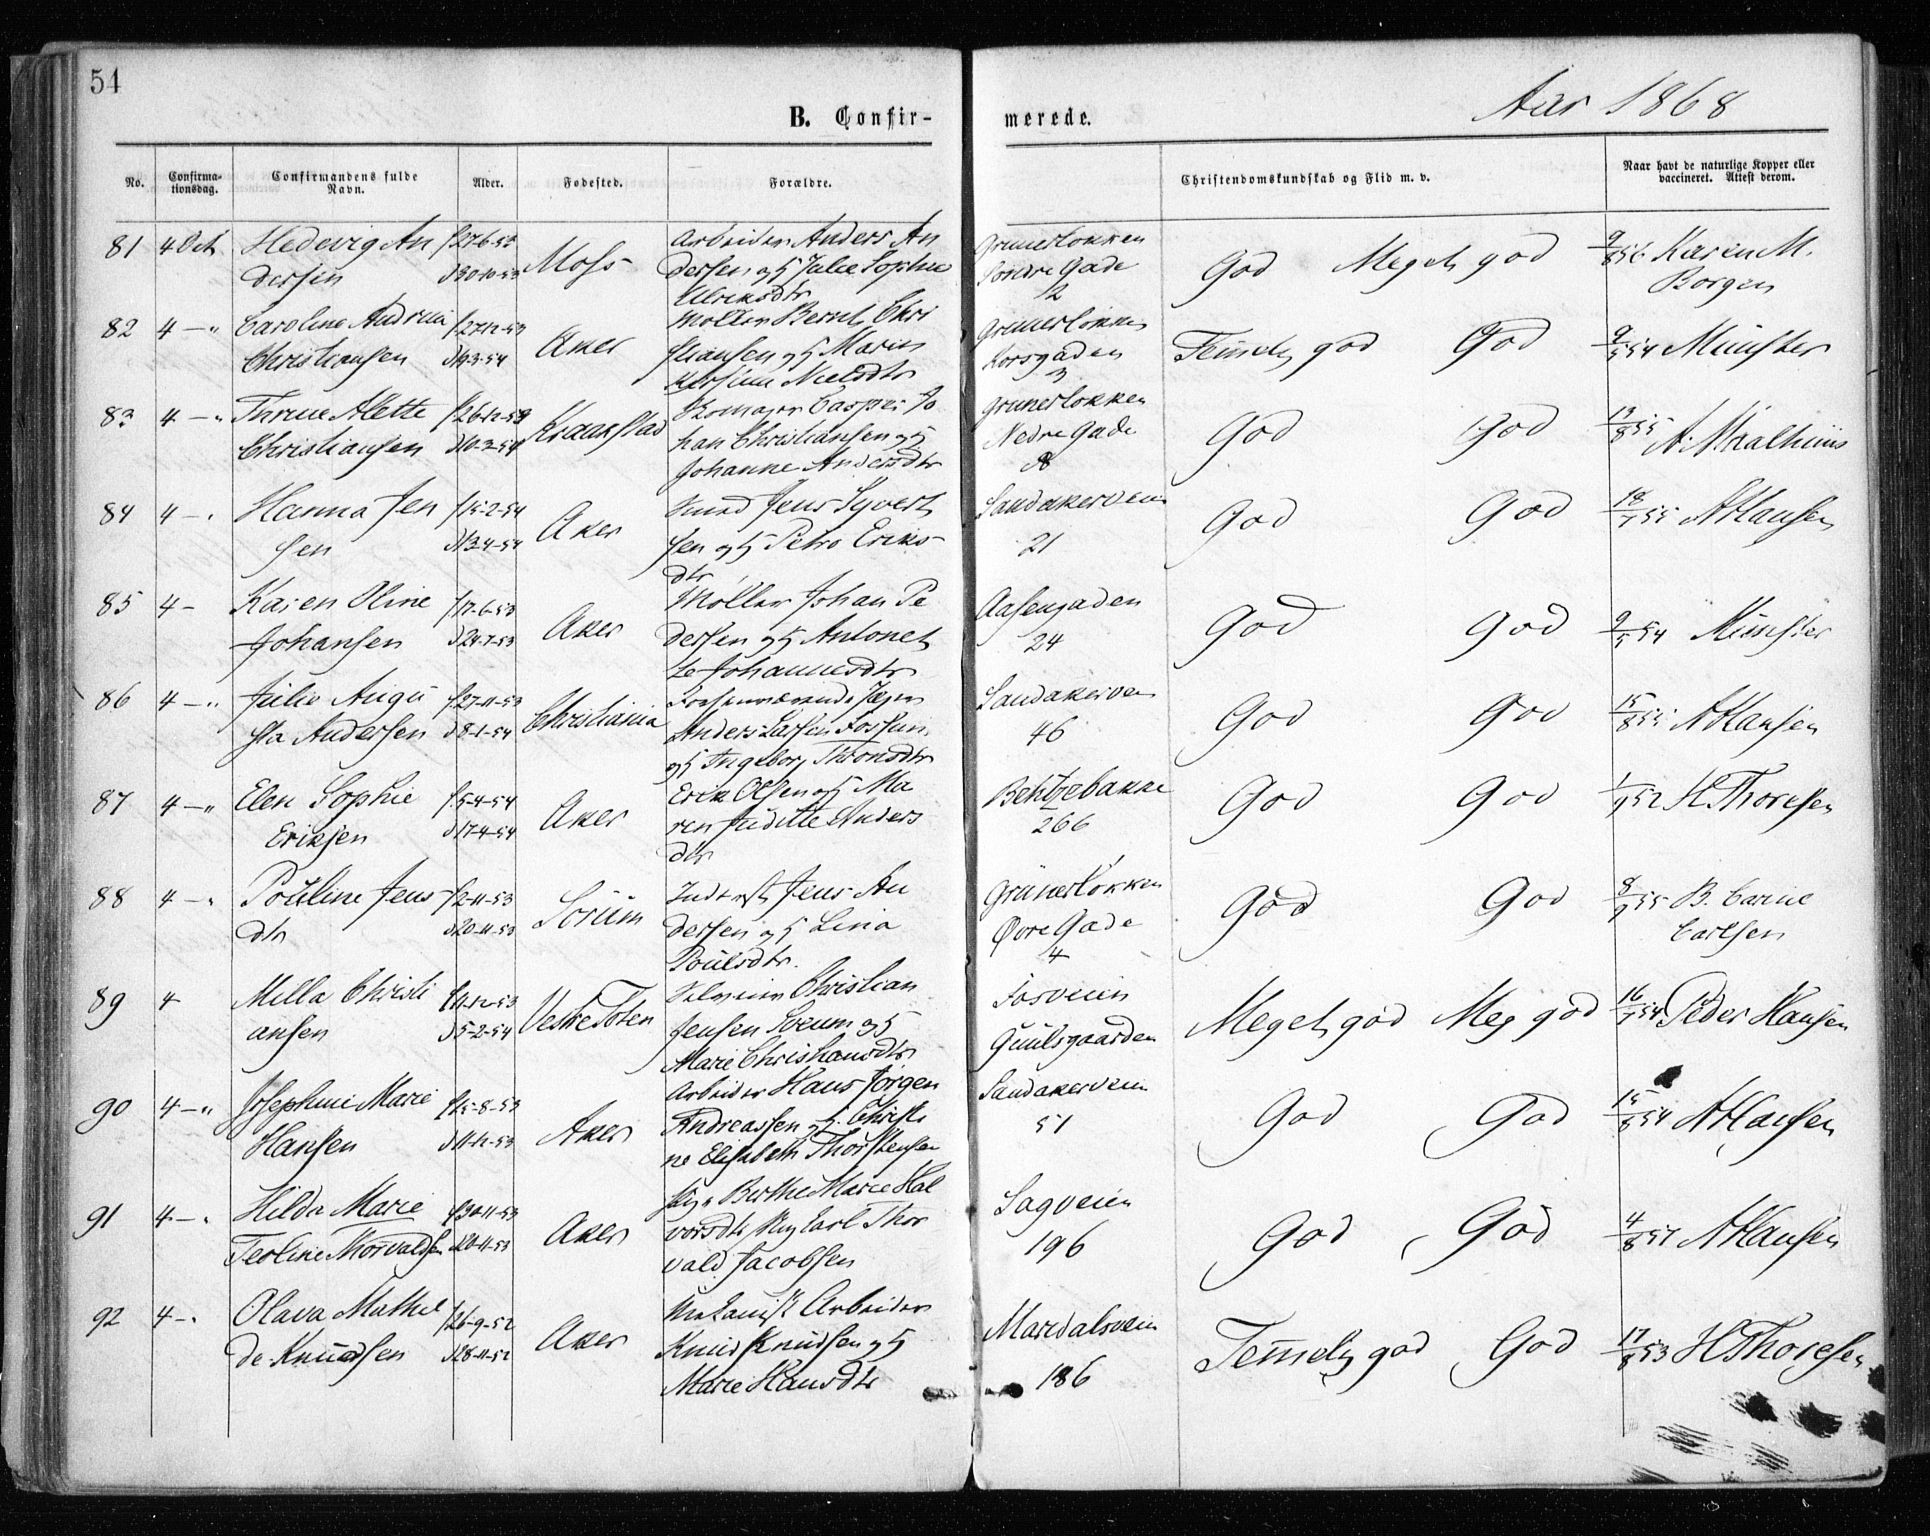 54
B. Confir-
merede.
Aar 1868
No.
Confirma-
tionsdag.
Confirmandens fulde
Navn.
Alder.
Fødested.
Forældre.
Christendomskundskab og Flid m. v.
Naar havt de naturlige Kopper eller
vaccineret. Attest derom.
81 4 Oct Hedevig An
dersen
f 27-6-53
d 30-10-53
Moss
Arbeider Anders An
dersen og h Julie Sophie
Ulriksdtr
Grünerløkken
Søndre Gade
12
God Meget god
9/8 56 Karen M.
Borgen
82 4 — " Caroline Andrea
Christiansen
f 27-12-53
d 19-3-54
Aker
Møller Bernt Chri
stiansen og h Maren
Nielsdtr
Grünerløkken
Korsgaden
3
Temmely god God
9/5 54 Münster
83 4 — " Thrine Alette
Christiansen
f 26-12-53
d 10-3-54
Kraakstad
Skomager Casper Jo
han Christiansen og h
Johanne Andersdtr
Grünerløkken
Nedre Gade
God God
13/8 55
84 4 — " Hanna Jen
sen
f 15-2-54
d 13-4-54
Aker
Smed Jens Syvert
sen og h Petra Eriks-
dtr
Sandakerveien
21
God God
55 A Hansen
85 4 — Karen Oline
Johansen
f 17-6-53
d 24-7-53
Aker
Møller Johan Pe
dersen og h Antonet
te Johannesdtr
Aasengaden
24
God God
9/5 54 Münster
86 4 — " Julie Augu
sta Andersen
f 27-11-53
d 8-1-54
Christiania
Anders Larsen Fossum
og h Ingeborg Thronsdtr
Sandakervei
46
God God
15/8 55 A Hansen
87 4 — " Elen Sophie
Eriksen
f 5-4-54
d 17-4-54
Aker
Erik Olsen og h Ma
ren Juditte Anders
dtr
266
God God
1/9 52 H Thoresen
88 4 — " Pouline Jens
dtr
f 2-11-53
d 20-11-53
Sørum
Inderst Jens An
dersen og h Lina
Poulsdtr.
Grünerløkken
Øvre Gade
4
God God
8/9 55 B. Carine
Carlsen
89 4 Milla Christi
ansen
f 11-12-53
d 5-2-54
Vestre Toten
Selveier Christian
Jensen Sveum og h
Marie Christiansdtr
Fosveien
Guulsgaarden
Meget god Meg god
54 Peder Hansen
90 4 — " Josephine Marie
Hansen
f 25-8-53
d 11-12-53
Aker
Arbeider Hans Jørgen
Andreassen og h. Christi
ne Elisabeth Thorstensen
Sandakerveien
51
God God
54 A Hansen
91 4 — " Hilda Marie
Teoline Thorvaldsen
f 30-11-53
Aker
Pige Berthe Marie Hal
vorsdtr Carl Thor
vald Jacobsen
Sagveien
196
God God
4/8 57 A Hansen
92 4 — " Olava Mathil
de Knudsen
f 26-9-52
d 28-11-52
Aker
Mekanisk Arbeider
Knud Knudsen og h
Marie Hansdtr
Maridalsveien
186
Temmely god God
17/8 53 H Thoresen